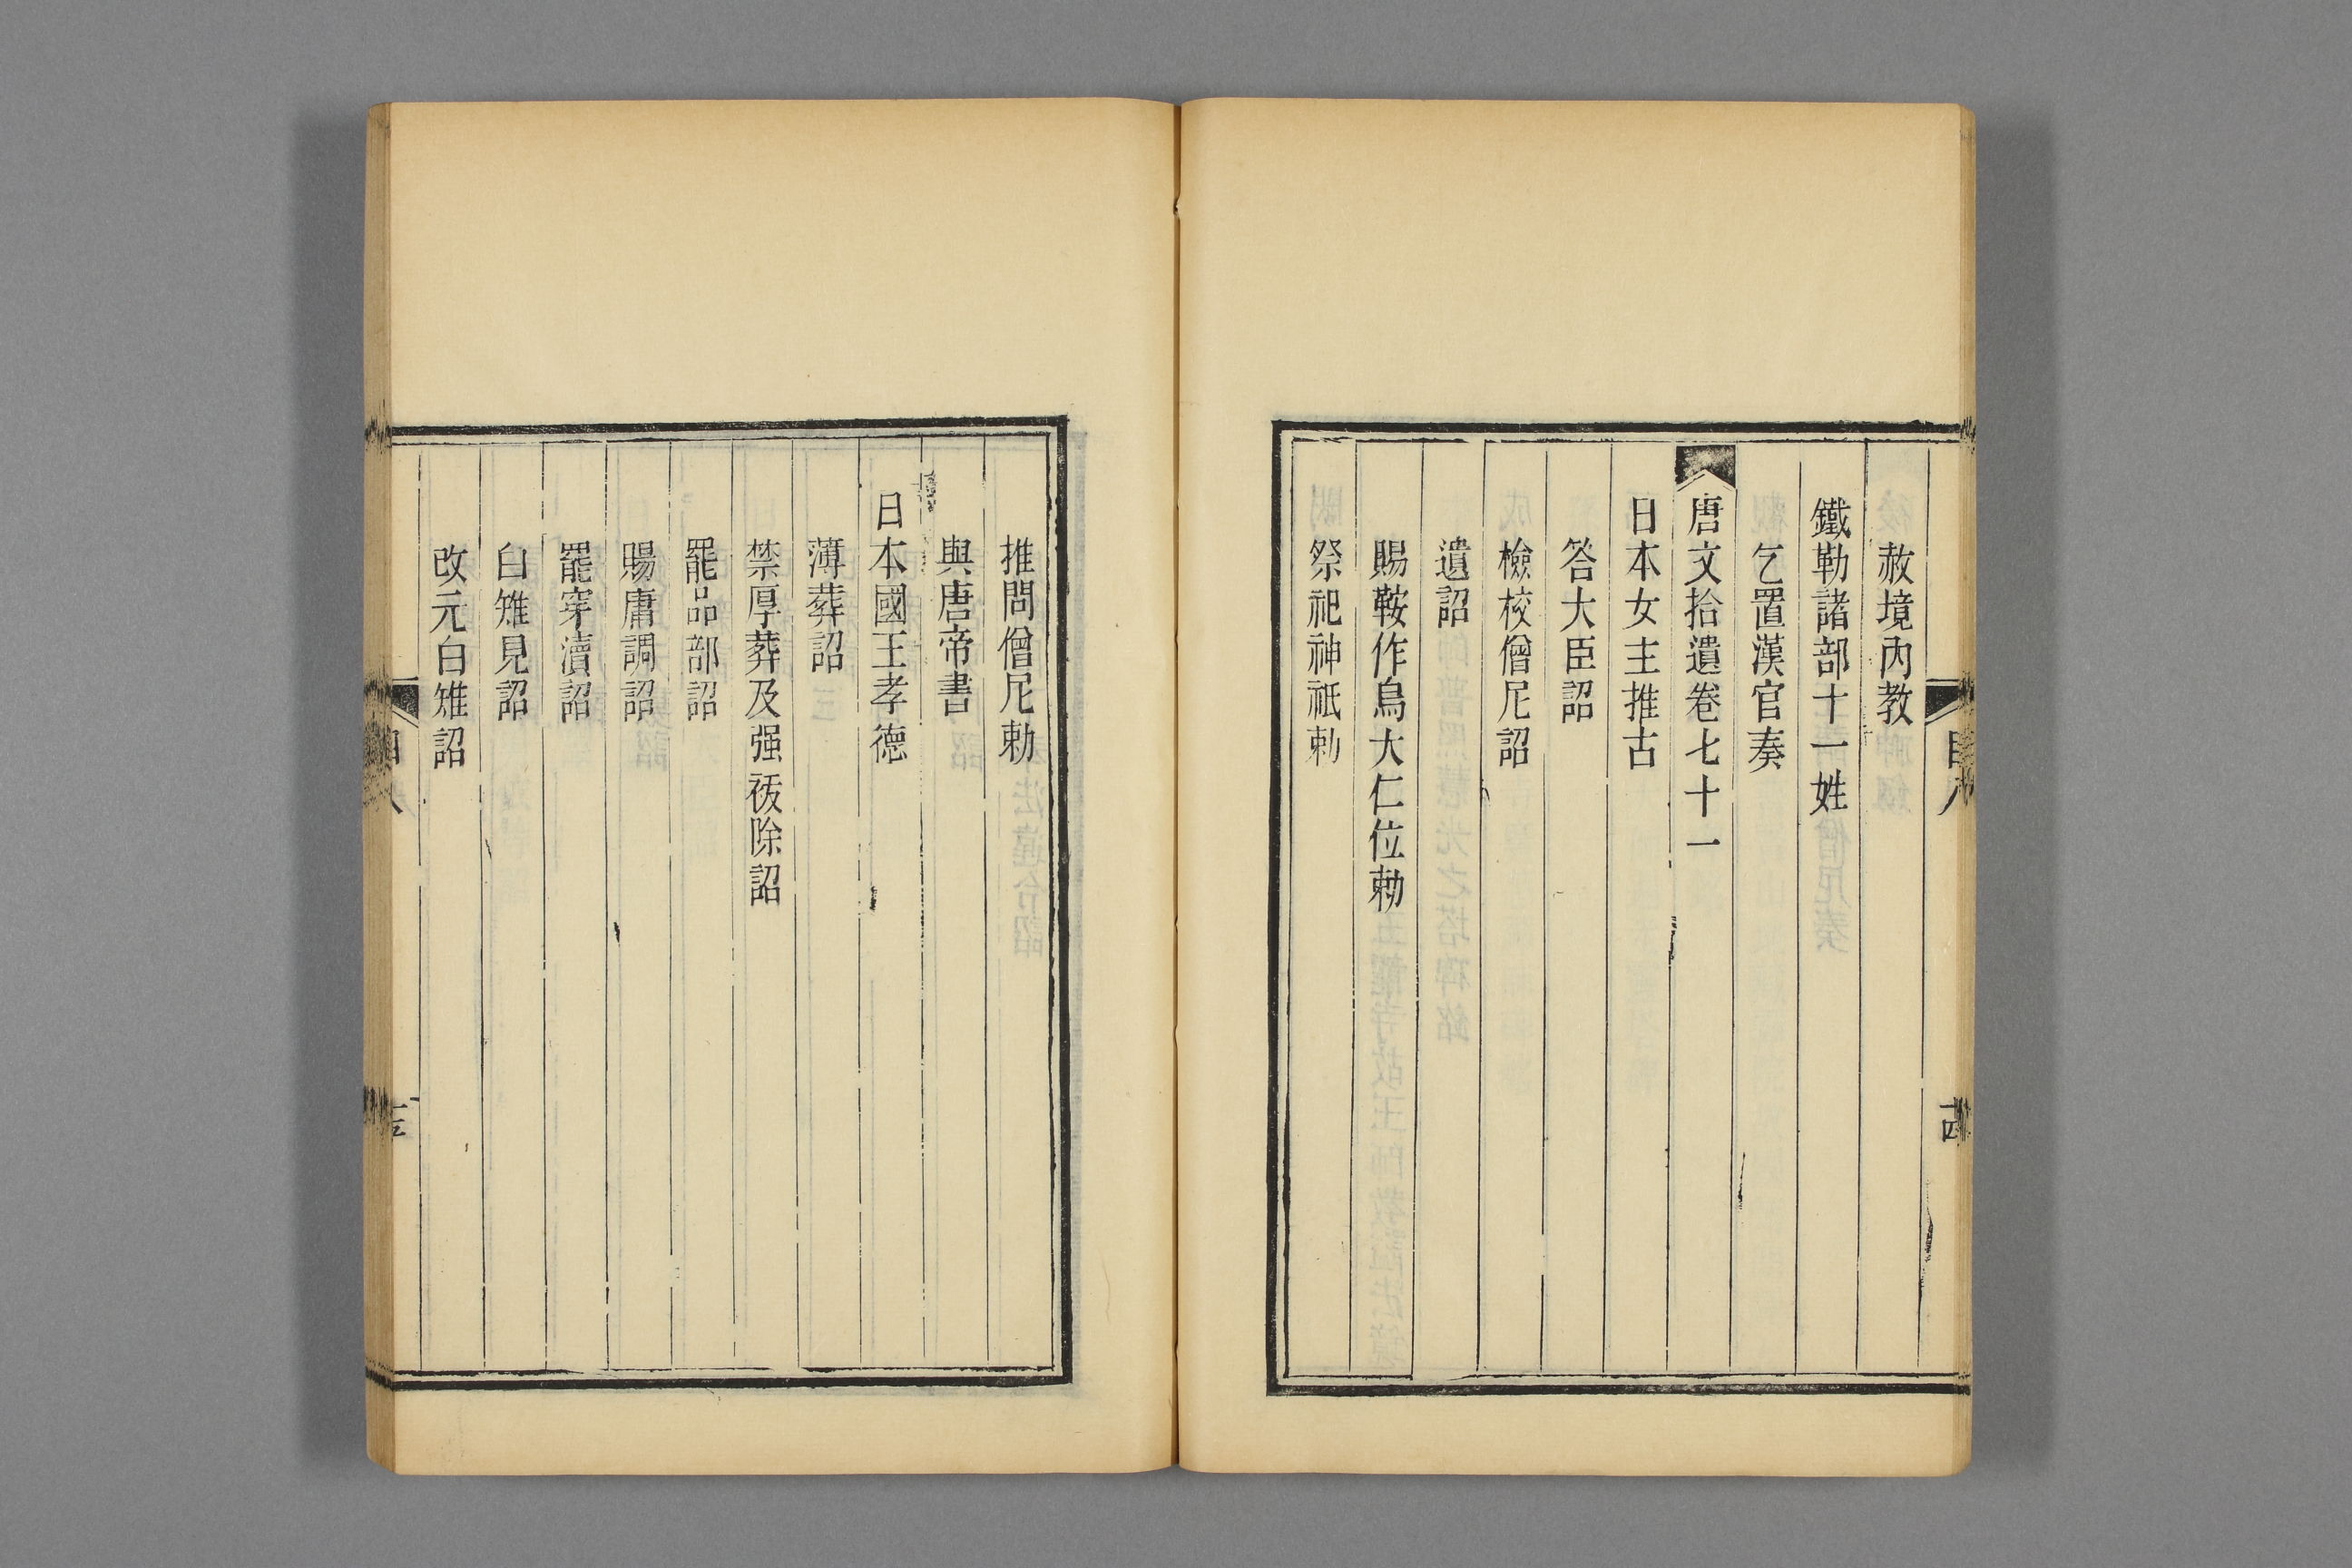 赦境內教
鐵勒諸部十一姓
乞置漢官奏
唐文拾遺卷七十一
日本女主推古
答大臣詔
檢校僧尼詔
遺詔
賜鞍作鳥大仁位勅
祭祀神祇勅
推問僧尼勅
與唐帝書
日本國王孝德
薄葬詔
禁厚葬及强祓除詔
罷品部詔
賜庸調詔
罷穿瀆詔
白雉見詔
改元白雉詔